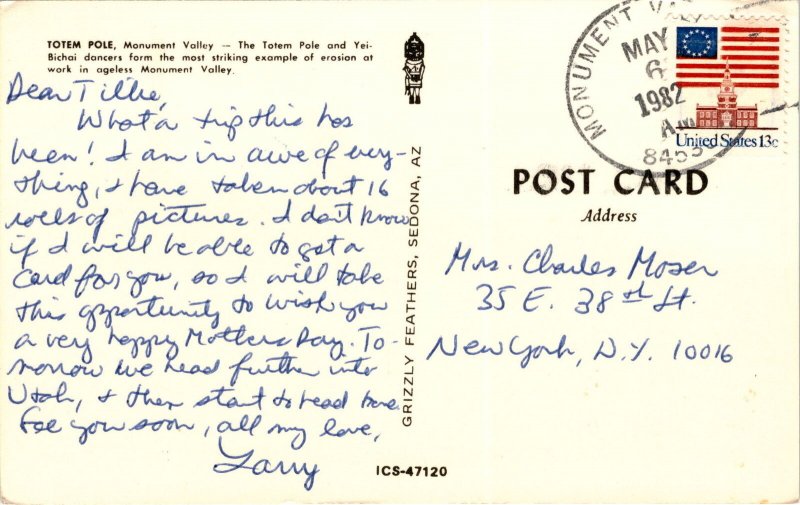 TOTEM POLE, Monument Valley — The Totem Pole and Yei-
Bichai dancers form the most striking example of erosion at
work in ageless Monument Valley.
Dear Tillie,
What a trip this has
been! I am in awe of every-
thing, & have taken about 16
rolls of pictures. I don't know
if I will be able to get a
card for you, so I will take
this opportunity to wish you
a very happy Mothers Day. To-
morrow we head further into
Utah, & then start to head home.
See you soon, all my love,
Larry
GRIZZLY FEATHERS, SEDONA, AZ
ICS-47120
MONUMENT VAL
MAY
6
1982
AM
8453
United States 13c
POST CARD
Address
Mrs. Charles Moser
35 E. 38th St.
New York, N.Y. 10016